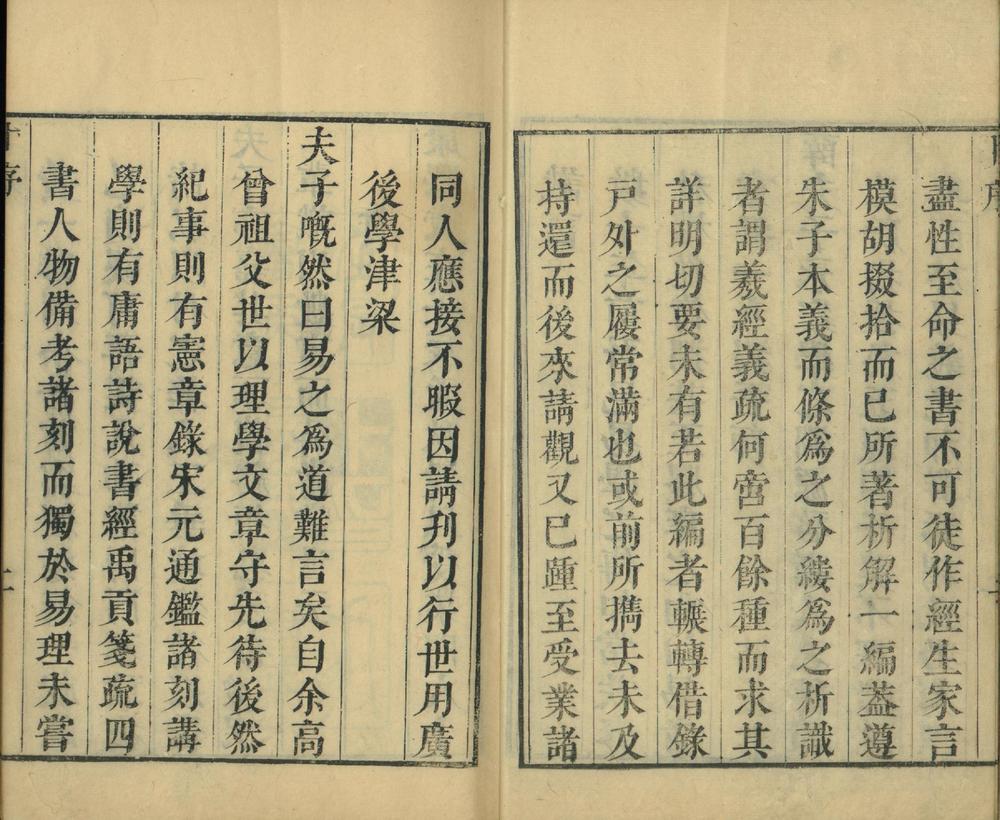 盡性至命之書不可徒作經生家言
模胡掇拾而已所著析解一編葢遵
朱子本義而條為之分縷為之析識
者謂羲經義疏何啻百餘種而求其
詳明切要未有若此編者輾轉借錄
戸外之屨常滿也或前所擕去未及
持還而後來請觀又已踵至受業諸
同人應接不暇因請刊以行世用廣
後學津梁
夫子嘅然曰易之爲道難言矣自余高
曾祖父世以理學文章守先待後然
紀事則有憲章錄宋元通鑑諸刻講
學則有庸語詩說書經禹貢箋疏四
書人物備考諸刻而獨於易理未嘗